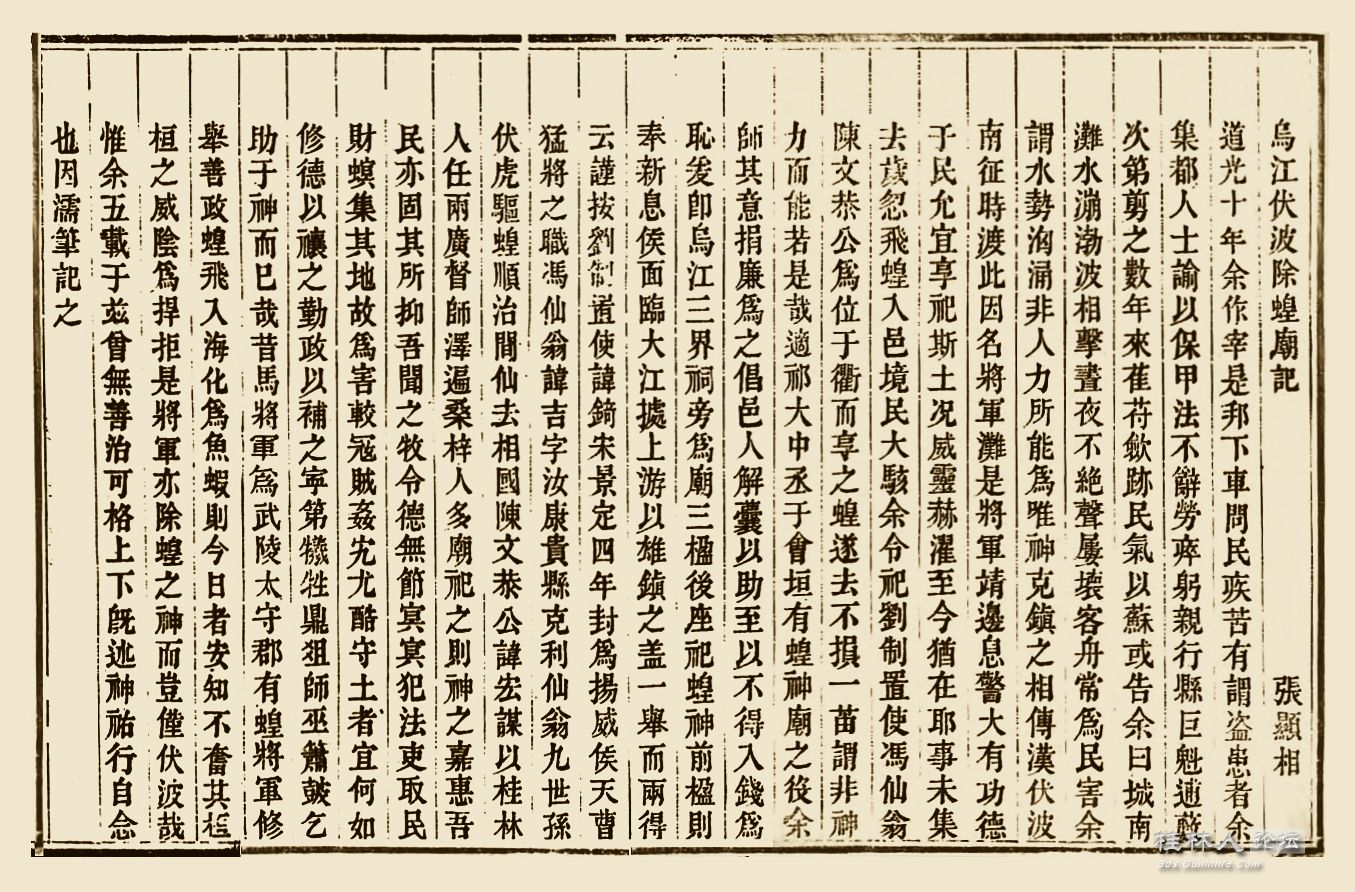 烏江伏波除蝗廟記
張顯相
道光十年余作宰是邦下車問民疾苦有謂盗患者余
集都人士諭以保甲法不辭勞瘁躬親行縣巨魁逋藪
次第剪之數年來萑苻歛跡民氣以蘇或告余曰城南
灘水漰渤波相擊晝夜不絶聲屢壊客舟常爲民害余
謂水勢洶涌非人力所能爲唯神克鎮之相傳漢伏波
南征時渡此因名將軍灘是將軍靖邊息警大有功德
于民允宜享祀斯土况威靈赫濯至今猶在耶事未集
去歲忽飛蝗入邑境民大駭余令祀劉制置使馮仙翁
陳文恭公爲位于衢而享之蝗遂去不損一苗謂非神
力而能若是哉適祁大中丞于會垣有蝗神廟之役余
師其意捐廉爲之倡邑人解囊以助至以不得入錢爲
恥爰卽烏江三界祠旁爲廟三楹後座祀蝗神前楹則
奉新息侯面臨大江據上游以雄鎮之盖一舉而兩得
云謹按劉制置使諱錡宋景定四年封爲揚威侯天曹
猛將之職馮仙翁諱吉字汝康貴縣克利仙翁九世孫
伏虎驅蝗順治間仙去相國陳文恭公諱宏謀以桂林
人任兩廣督師澤遍桑梓人多廟祀之則神之嘉惠吾
民亦固其所抑吾聞之牧令德無節冥冥犯法吏取民
財螟集其地故爲害較冦賊姦宄尤酷守土者宜何如
修德以禳之勤政以補之寧第犧牲鼎俎師巫簫鼓乞
助于神而已哉昔馬將軍爲武陵太守郡有蝗將軍修
舉善政蝗飛入海化爲魚蝦則今日者安知不奮其桓
桓之威陰爲捍拒是將軍亦除蝗之神而豈僅伏波哉
惟余五載于兹曾無善治可格上下旣逃神祐行自念
也因濡筆記之
桂林人论坛
bbs.Guilinlife.Com